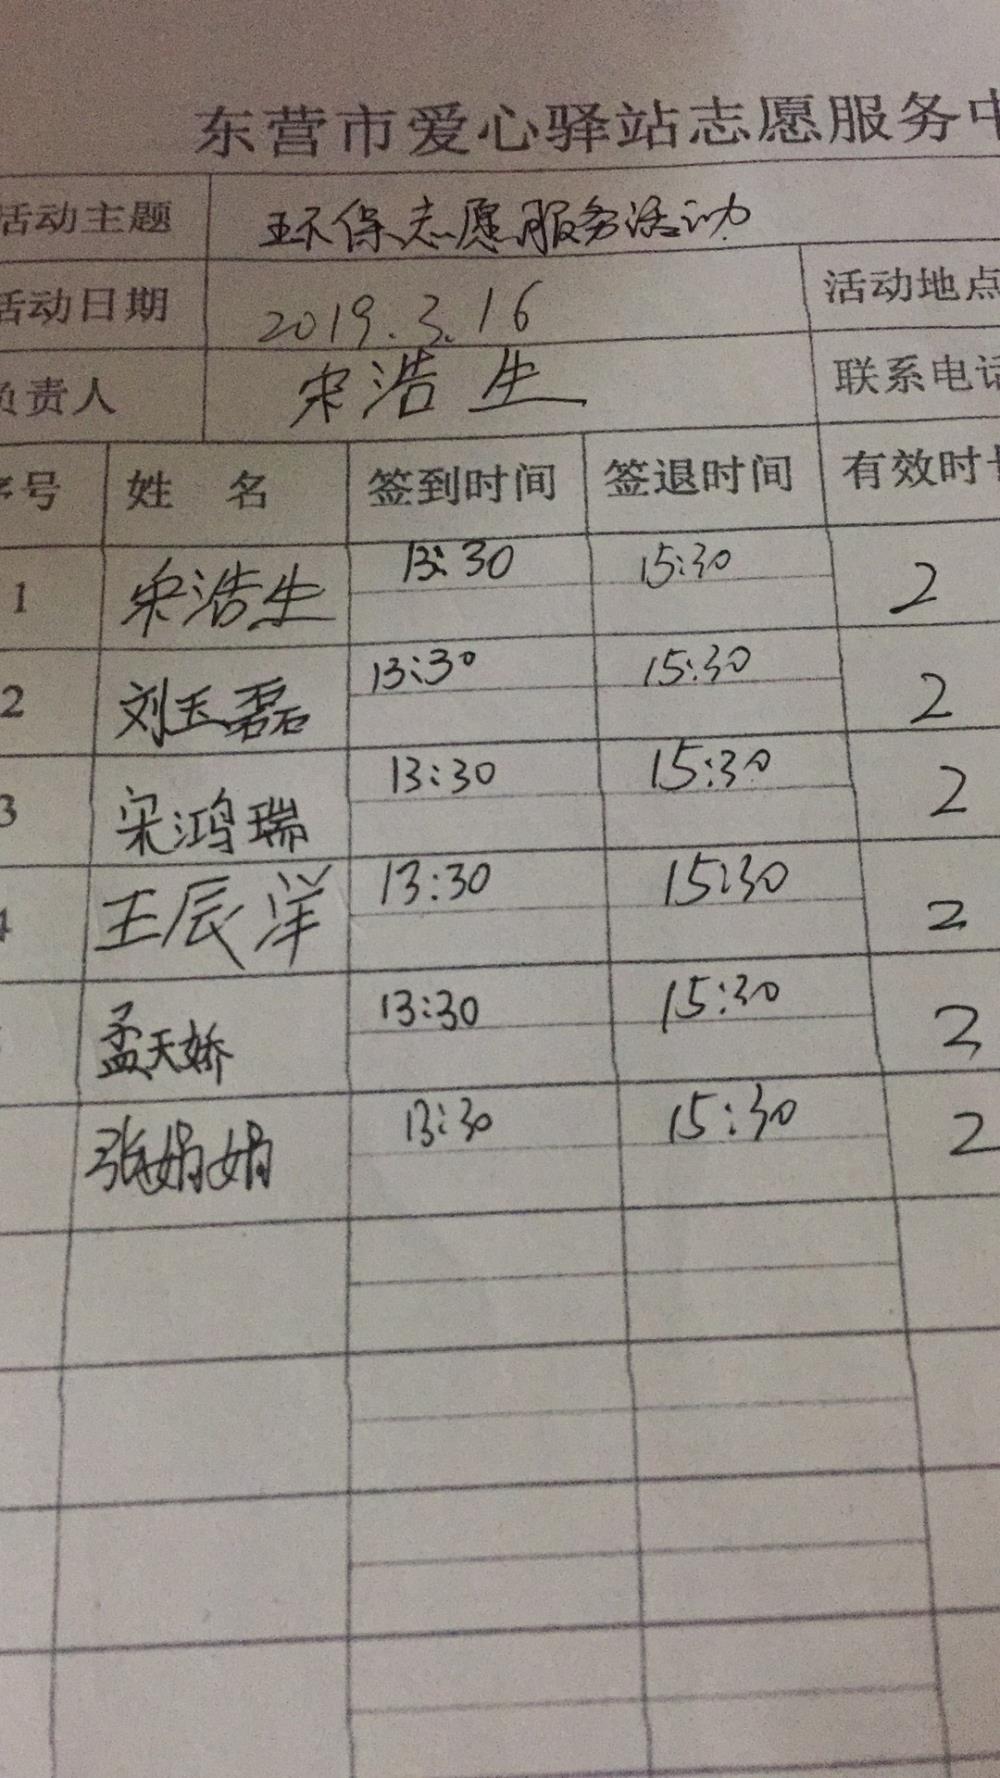 东营市爱心驿站志愿服务中
活动主题 环保志愿服务活动
活动日期 2019.3.16 活动地点
负责人 宋浩生 联系电话
序号 姓 名 签到时间 签退时间 有效时长
1 宋浩生 13:30 15:30 2
2 刘玉磊 13:30 15:30 2
3 宋鸿瑞 13:30 15:30 2
4 王辰洋 13:30 15:30 2
孟天娇 13:30 15:30 2
张娟娟 13:30 15:30 2